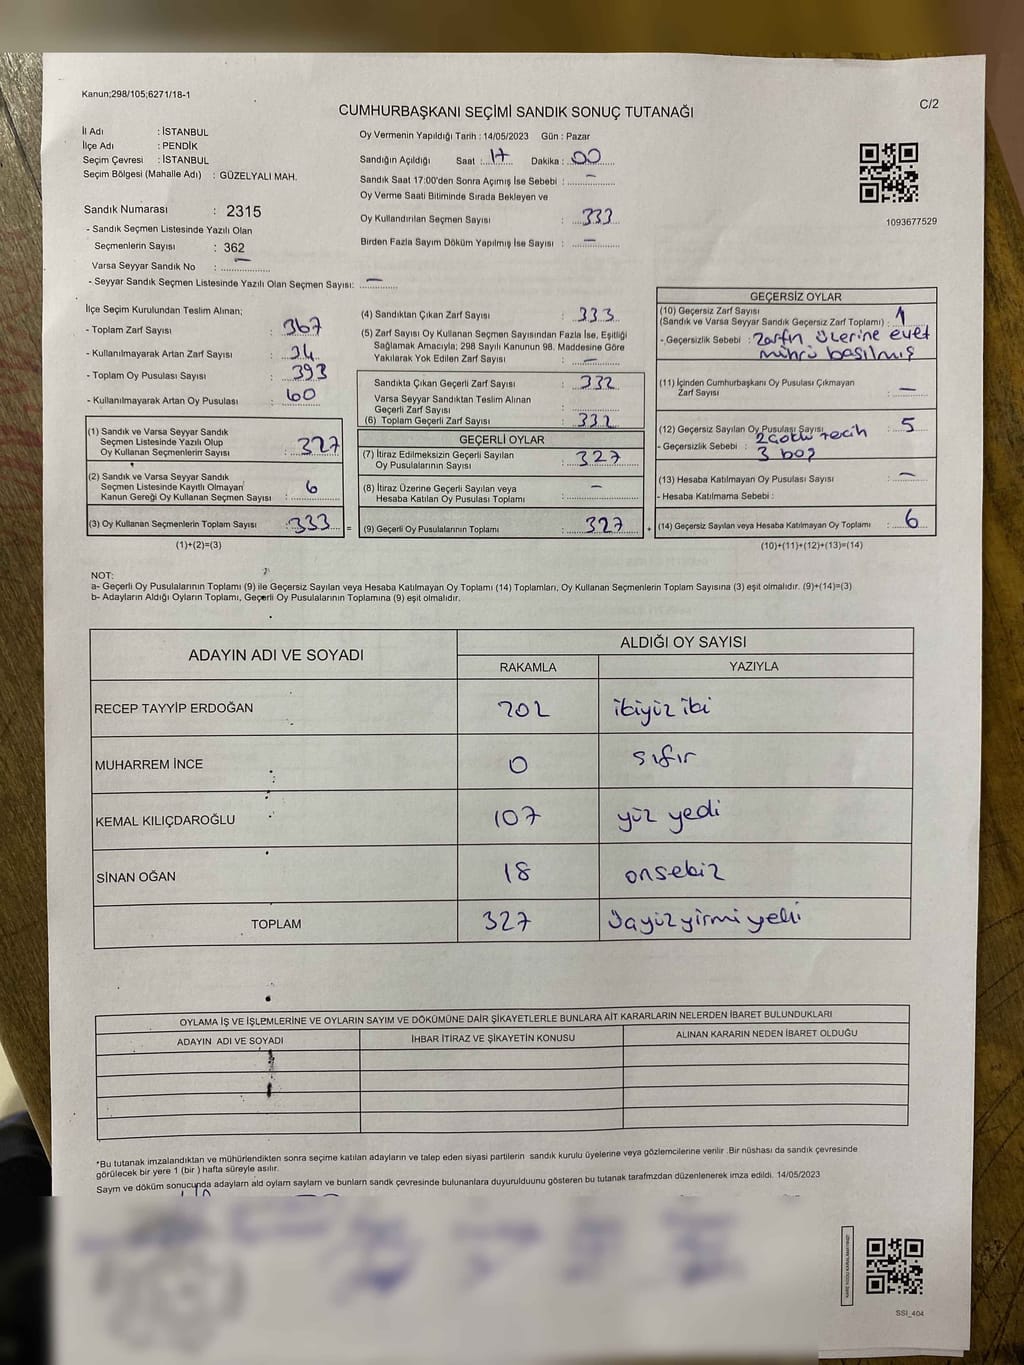 Kanun;298/105;6271/18-1
C/2
CUMHURBAŞKANI SEÇİMİ SANDIK SONUÇ TUTANAĞI
İl Adı : İSTANBUL
İlçe Adı : PENDİK
Seçim Çevresi : İSTANBUL
Seçim Bölgesi (Mahalle Adı) : GÜZELYALI MAH.
Sandık Numarası : 2315
- Sandık Seçmen Listesinde Yazılı Olan
Seçmenlerin Sayısı : 362
Varsa Seyyar Sandık No : —
- Seyyar Sandık Seçmen Listesinde Yazılı Olan Seçmen Sayısı: —
Oy Vermenin Yapıldığı Tarih : 14/05/2023 Gün : Pazar
Sandığın Açıldığı Saat : 17 Dakika : 00
Sandık Saat 17:00'den Sonra Açımış İse Sebebi : —
Oy Verme Saati Bitiminde Sırada Bekleyen ve
Oy Kullandırılan Seçmen Sayısı : 333
Birden Fazla Sayım Döküm Yapılmış İse Sayısı : —
1093677529
İlçe Seçim Kurulundan Teslim Alınan;
- Toplam Zarf Sayısı : 367
- Kullanılmayarak Artan Zarf Sayısı : 34
- Toplam Oy Pusulası Sayısı : 393
- Kullanılmayarak Artan Oy Pusulası : 60
(1) Sandık ve Varsa Seyyar Sandık
Seçmen Listesinde Yazılı Olup
Oy Kullanan Seçmenlerin Sayısı : 327
(2) Sandık ve Varsa Seyyar Sandık
Seçmen Listesinde Kayıtlı Olmayan
Kanun Gereği Oy Kullanan Seçmen Sayısı : 6
(3) Oy Kullanan Seçmenlerin Toplam Sayısı : 333 =
(1)+(2)=(3)
(4) Sandıktan Çıkan Zarf Sayısı : 333
(5) Zarf Sayısı Oy Kullanan Seçmen Sayısından Fazla İse, Eşitliği
Sağlamak Amacıyla; 298 Sayılı Kanunun 98. Maddesine Göre
Yakılarak Yok Edilen Zarf Sayısı : —
Sandıkta Çıkan Geçerli Zarf Sayısı : 332
Varsa Seyyar Sandıktan Teslim Alınan
Geçerli Zarf Sayısı :
(6) Toplam Geçerli Zarf Sayısı : 332
GEÇERLİ OYLAR
(7) İtiraz Edilmeksizin Geçerli Sayılan
Oy Pusulalarının Sayısı : 327
(8) İtiraz Üzerine Geçerli Sayılan veya
Hesaba Katılan Oy Pusulası Toplamı : —
(9) Geçerli Oy Pusulalarının Toplamı : 327 +
GEÇERSİZ OYLAR
(10) Geçersiz Zarf Sayısı
(Sandık ve Varsa Seyyar Sandık Geçersiz Zarf Toplamı) : 1
- Geçersizlik Sebebi : Zarfın üzerine evet
mührü basılmış
(11) İçinden Cumhurbaşkanı Oy Pusulası Çıkmayan
Zarf Sayısı : —
(12) Geçersiz Sayılan Oy Pusulası Sayısı : 5
- Geçersizlik Sebebi : 2 çoklu tecih
3 boş
(13) Hesaba Katılmayan Oy Pusulası Sayısı : —
- Hesaba Katılmama Sebebi :
(14) Geçersiz Sayılan veya Hesaba Katılmayan Oy Toplamı : 6
(10)+(11)+(12)+(13)=(14)
NOT:
a- Geçerli Oy Pusulalarının Toplamı (9) ile Geçersiz Sayılan veya Hesaba Katılmayan Oy Toplamı (14) Toplamları, Oy Kullanan Seçmenlerin Toplam Sayısına (3) eşit olmalıdır. (9)+(14)=(3)
b- Adayların Aldığı Oyların Toplamı, Geçerli Oy Pusulalarının Toplamına (9) eşit olmalıdır.
ADAYIN ADI VE SOYADI
ALDIĞI OY SAYISI
RAKAMLA YAZIYLA
RECEP TAYYİP ERDOĞAN 202 ikiyüz iki
MUHARREM İNCE 0 sıfır
KEMAL KILIÇDAROĞLU 107 yüz yedi
SİNAN OĞAN 18 onsekiz
TOPLAM 327 üçyüzyirmiyedi
OYLAMA İŞ VE İŞLEMLERİNE VE OYLARIN SAYIM VE DÖKÜMÜNE DAİR ŞİKAYETLERLE BUNLARA AİT KARARLARIN NELERDEN İBARET BULUNDUKLARI
ADAYIN ADI VE SOYADI İHBAR İTİRAZ VE ŞİKAYETİN KONUSU ALINAN KARARIN NEDEN İBARET OLDUĞU
*Bu tutanak imzalandıktan ve mühürlendikten sonra seçime katılan adayların ve talep eden siyasi partilerin sandık kurulu üyelerine veya gözlemcilerine verilir .Bir nüshası da sandık çevresinde
görülecek bir yere 1 (bir ) hafta süreyle asılır.
Saym ve döküm sonucunda adaylarn ald oylam saylarn ve bunlarn sandk çevresinde bulunanlara duyurulduunu gösteren bu tutanak tarafmzdan düzenlenerek imza edildi. 14/05/2023
SSI_404